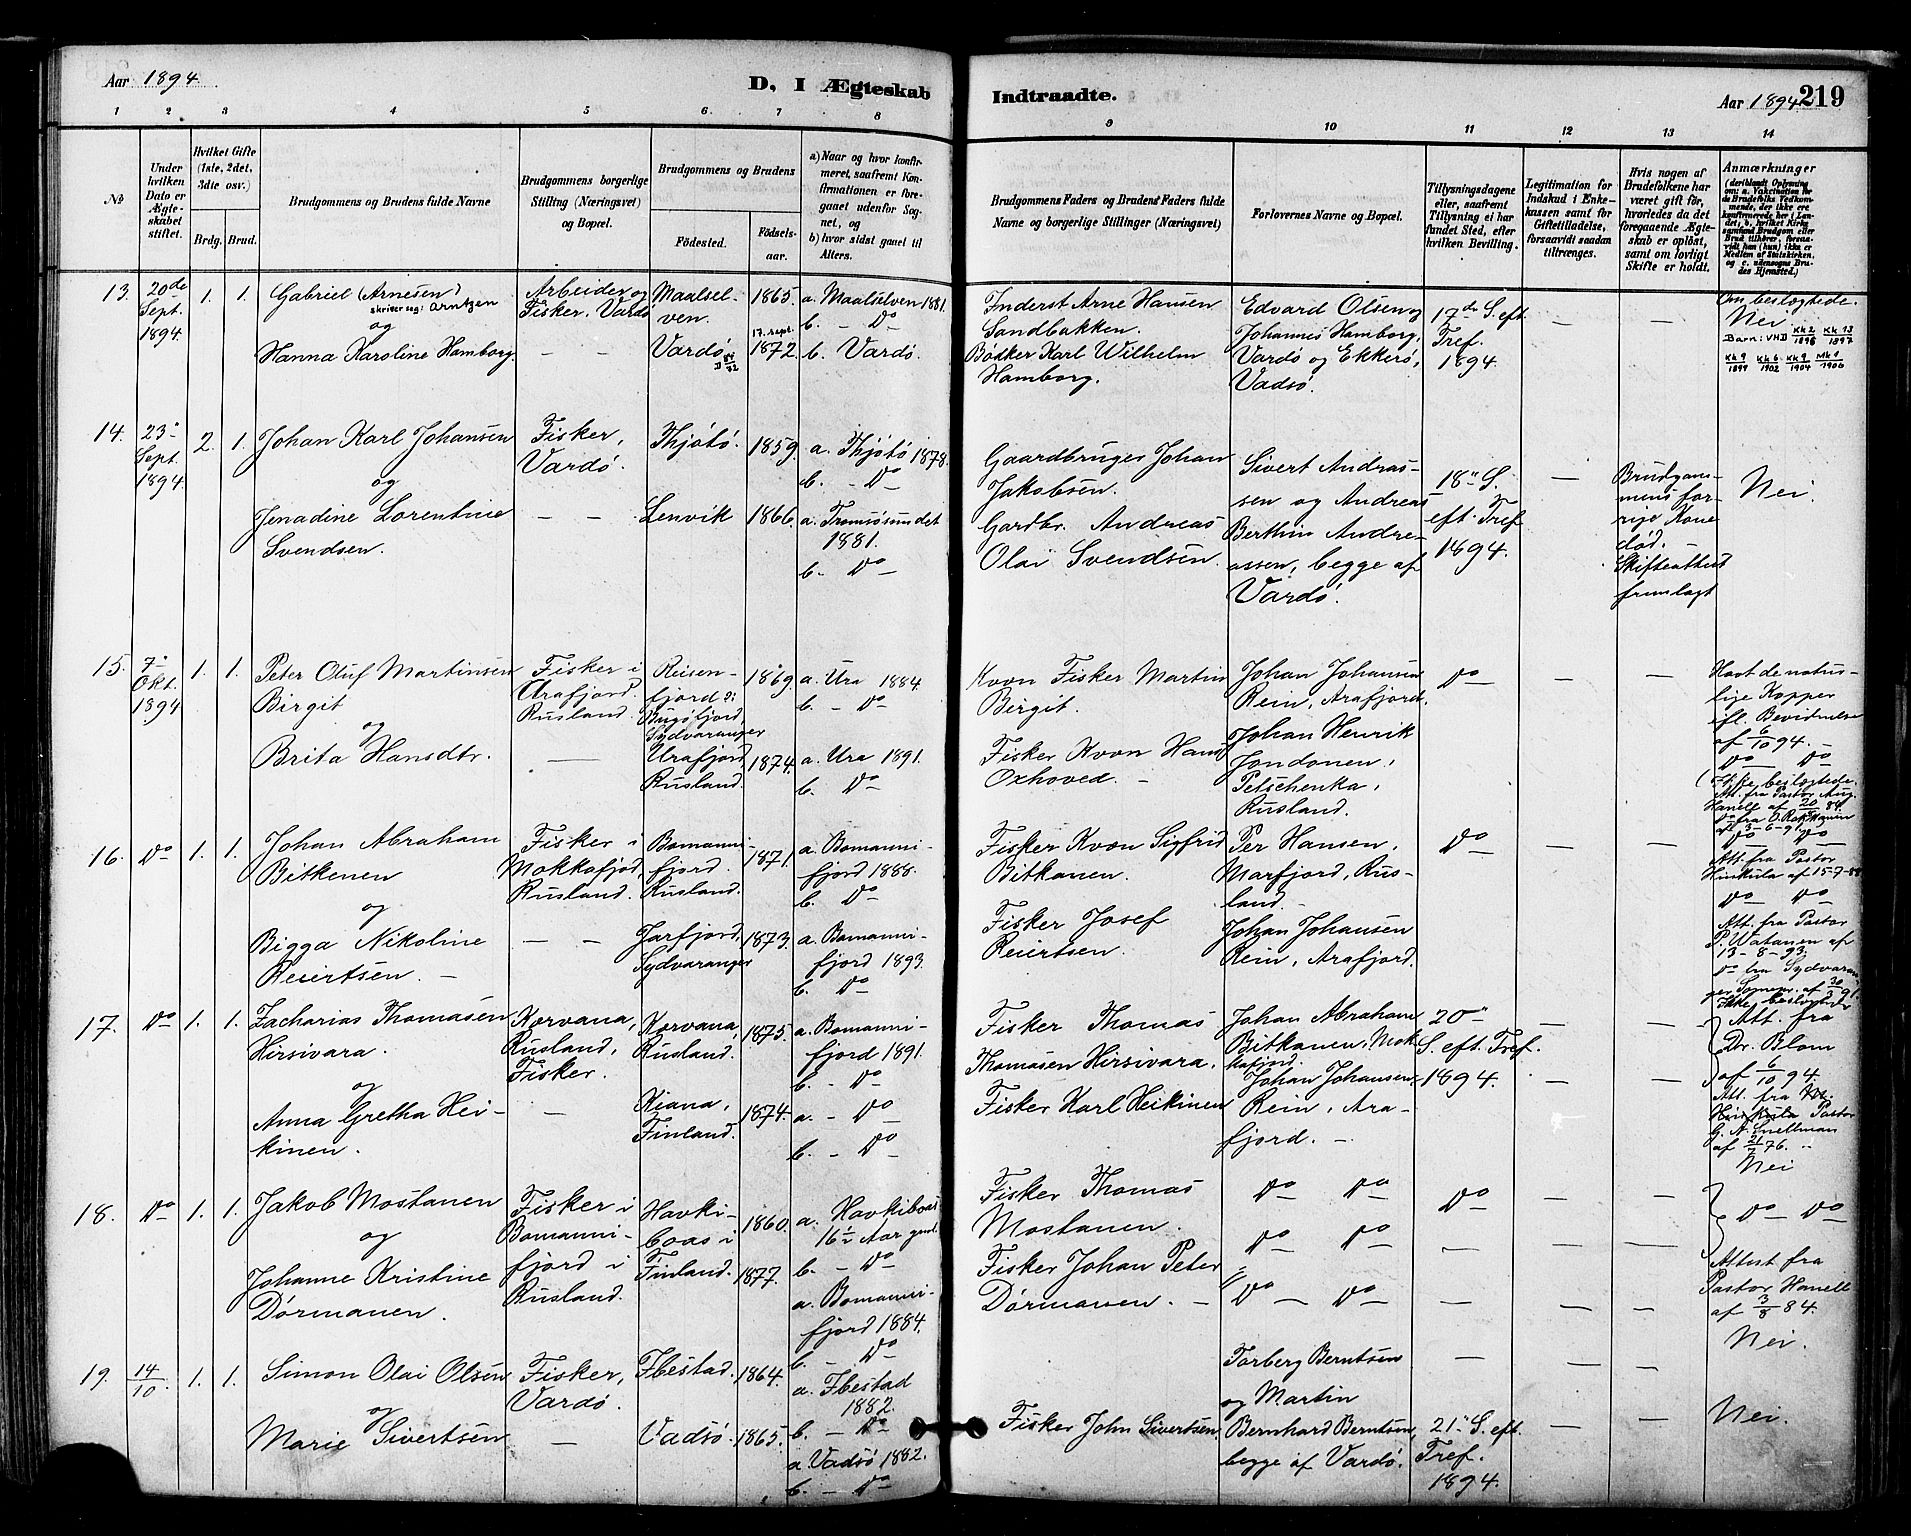 Aar 1894.
D, I Ægteskab
Indtraadte.
Aar 1894 219
1 2 3 4 5 6 7 8 9 10 11 12 13 14
No
Under hvilken Dato er Ægteskabet stiftet.
Hvilket Gifte (1ste, 2det, 3die osv.)
Brdg. Brud.
Brudgommens og Brudens fulde Navne
Brudgommens borgerlige Stilling (Næringsvei) og Bopæl.
Brudgommens og Brudens
Fødested. Fødselsaar.
a) Naar og hvor konfirmeret, saafremt Konfirmationen er foregaaet udenfor Sognet, og
b) hvor sidst gaaet til Alters.
Brudgommens Faders og Brudens Faders fulde Navne og borgerlige Stillinger (Næringsvei)
Forlovernes Navne og Bopæl.
Tillysningsdagene eller, saafremt Tillysning ei har fundet Sted, efter hvilken Bevilling.
Legitimation for Indskud i Enkekassen samt for Giftetilladelse, forsaavidt saadan tiltrænges.
Hvis nogen af Brudefolkene har været gift før, hvorledes da det foregaaende Ægteskab er opløst, samt om lovligt Skifte er holdt.
Anmærkninger
(deriblandt Oplysning om: a. Vakcination for de Brudefolks Vedkommende, der ikke ere konfirmerede her i Landet; b. hvilket Kirkesamfund Brudgom eller Brud tilhører, forsaavidt han (hun) ikke er Medlem af Statskirken, og c. udensogns Brudes Hjemsted.)
13. 20de Sept. 1894. 1. 1.
Gabriel (Arnesen)
skriver seg: Arntzen
og
Hanna Karoline Hamborg.
Arbeider og
Fisker, Vardö
— —
Maalsel-
ven.
Vardö
1865.
17. Sept.
1872.
a. Maalselven 1881.
b. — Do
b. Vardö.
Inderst Arne Hansen
Sandbakken.
Bödker Karl Wilhelm
Hamborg.
Edvard Olsen og
Johannes Hamborg,
Vardö og Ekkerö,
Vadsö.
17de S. eft
Tref.
1894.
— —
Om beslægtede.
Nei
Barn: VHD Kk 2/1896 Kk 13/1897
Kk 9/1899 Kk 6/1902 Kk 9/1904 Mk 1/1906
14. 23" Sept. 1894. 2. 1.
Johan Karl Johansen
og
Jenadine Lorentine
Svendsen.
Fisker,
Vardö.
— —
Thjötö.
Lenvik
1859.
1866.
a. Thjötö 1878.
b. — Do
a. Tromsösundet
1881.
b. Do —
Gaardbruger Johan
Jakobsen.
Gardbr. Andreas
Olai Svendsen.
Sivert Andras-
sen og Andreas
Berthin Andre-
assen, begge af
Vardö.
18" S.
eft. Tref
1894.
—
Brudgom-
mens for-
rige Kone
död.
Skifteattest
fremlagt
Nei.
15. 7" Okt. 1894 1. 1.
Peter Oluf Martinsen
Birgit
og
Brita Hansdtr.
Fisker i
Urafjord.
Rusland.
—
Reisen-
fjord o:
Bugöfjord,
Sydvaranger
Urafjord
Rusland.
1869.
1874.
a. Ura 1884.
b. — Do
a. Ura 1891.
b. Do —
Kvæn Fisker Martin
Birgit.
Fisker Kvæn Hans
Oxhoved. —
Johan Johansen
Rein, Arafjord.
Johan Henrik
Jondonen,
Petschenka,
Rusland.
Do —
— —
Havt de natur-
lige Kopper
ifl. Bevidnelse
af 6/10 94. —
Do Do
(Ikke beslægtede.
Att. fra Pastor Aug.
16. Do 1. 1.
Johan Abraham
Bitkenen
og
Bigga Nikoline
Reiertsen. —
Fisker i
Mokkafjord
Rusland.
— —
Bomanni-
fjord.
Rusland.
Jarfjord,
Sydvaranger
1871.
1873.
a. Bomanni-
fjord 1888.
b. Do
a. Bomanni-
fjord 1893.
b. Do
Fisker Kvæn Sigfrid
Bitkanen.
Fisker Josef
Reiertsen.
Per Hansen,
Marfjord, Rus-
land. —
Johan Johansen
Rein, Arafjord.
Do —
— —
Do Do
Att. fra Pastor
Do Do
Att. fra Pastor
P. Watanen af
13-8-93.
Do fra Sydvaran
17. Do 1. 1.
Zacharias Thomasen
Hirsivara.
og
Anna Gretha Hei-
kinen.
Korvana,
Rusland,
Fisker.
—
Korvana,
Rusland.
Kiana,
Finland.
1875.
1874.
a. Bomanni-
fjord 1891.
b. — Do
a. — Do
b. — Do
Fisker Thomas
Thomasen Hirsivara.
Fisker Karl Heikinen
Johan Abraham
Bitkanen, Mok
kafjord.
Johan Johansen
Rein, Ara-
fjord. —
20"
S. eft. Tref.
1894.
— —
— —
Ikke beslægtede
Att. fra
Dr. Blom
af 6/10 94.
Att. fra
Pastor
G. A. Snellman
af 21/7 76.
Nei
18. Do 1. 1.
Jakob Mostanen
og
Johanne Kristine
Dörmanen.
Fisker i
Bomanni-
fjord i
Rusland.
Havki-
boas i
Finland.
1860.
1877.
a. Havkiboas
16½ Aar gml.
b. — Do
a. Bomanni-
fjord 1884.
b. — Do
Fisker Thomas
Mostanen.
Fisker Johan Peter
Dörmanen. —
Do Do
Do Do
Do — Do —
Do
— —
— — —
— — —
Do — Do
Attest fra
Pastor Hanell
af 3/8 84.
Nei.
19. 14/10. 1. 1.
Simon Olai Olsen
og
Marie Sivertsen
Fisker,
Vardö.
—
Ibestad.
Vadsö.
1864.
1865.
a. Ibestad
1882.
b. — Do
a. Vadsö 1882.
b. — Do
Fisker John Sivertsen
Torberg Berntsen
og Martin
Bernhard Berntsen,
begge af Vardö.
—
21" S. eft.
Tref.
1894.
— —
Nei.